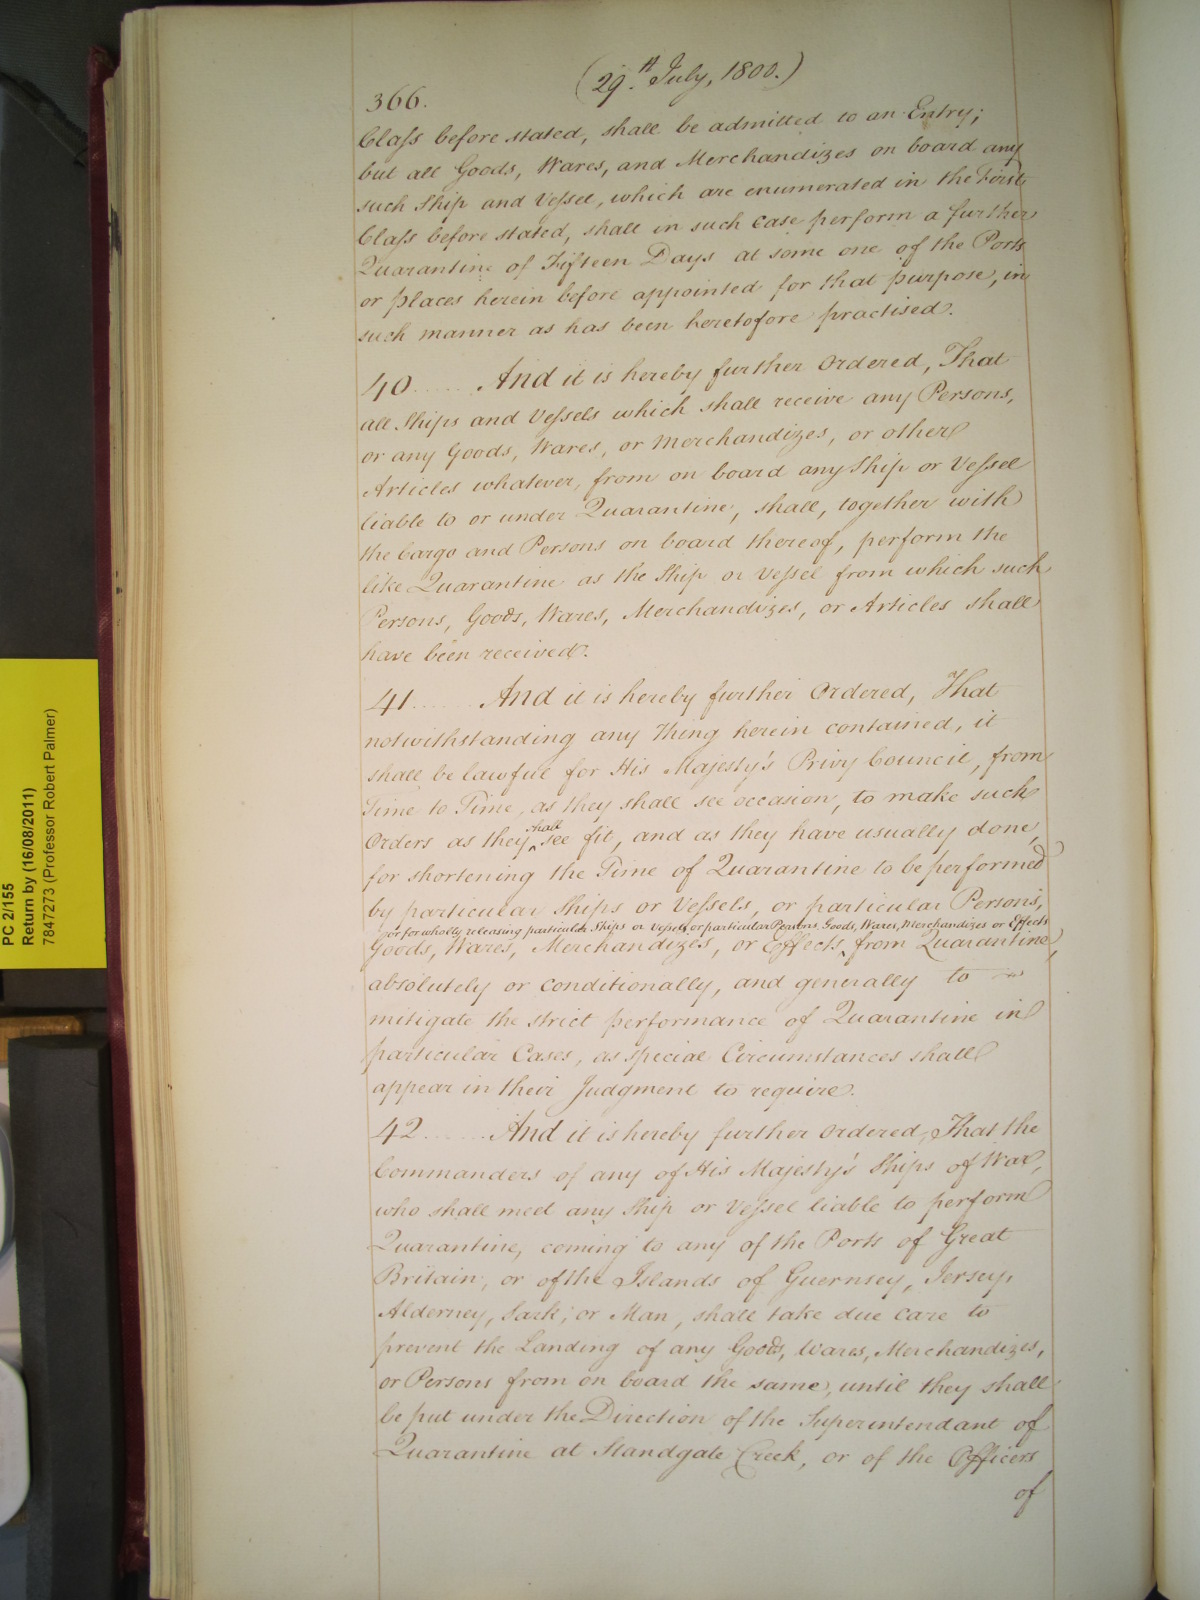 (29.th July, 1800.)
366.
Class before stated, shall be admitted to an Entry;
but all Goods, Wares, and Merchandizes on board any
such Ship and Vessel, which are enumerated in the First
Class before stated, shall in such case perform a further
Quarantine of Fifteen Days at some one of the Ports
or places herein before appointed for that purpose, in
such manner as has been heretofore practised.
40...... And it is hereby further Ordered, That
all Ships and Vessels which shall receive any Persons,
or any Goods, Wares, or Merchandizes, or other
Articles whatever, from on board any Ship or Vessel
liable to or under Quarantine, shall, together with
the Cargo and Persons on board thereof, perform the
like Quarantine as the Ship or Vessel from which such
Persons, Goods, Wares, Merchandizes, or Articles shall
have been received.
41...... And it is hereby further Ordered, That
notwithstanding any Thing herein contained, it
shall be lawful for His Majesty's Privy Council, from
Time to Time, as they shall see occasion, to make such
shall
Orders as they ‸ see fit, and as they have usually done,
for shortening the Time of Quarantine to be performed
by particular Ships or Vessels, or particular Persons,
or for wholly releasing particular Ships or Vessels, or particular Persons, Goods, Wares, Merchandizes or Effects
Goods, Wares, Merchandizes, or Effects ‸ from Quarantine,
absolutely or conditionally, and generally to ~
mitigate the strict performance of Quarantine in
particular Cases, as special Circumstances shall
appear in their Judgment to require.
42...... And it is hereby further Ordered, That the
Commanders of any of His Majesty's Ships of War,
who shall meet any Ship or Vessel liable to perform
Quarantine, coming to any of the Ports of Great
Britain, or of the Islands of Guernsey, Jersey,
Alderney, Sark, or Man, shall take due care to
prevent the Landing of any Goods, Wares, Merchandizes,
or Persons from on board the same, until they shall
be put under the Direction of the Superintendant of
Quarantine at Standgate Creek, or of the Officers
of
PC 2/155
Return by (16/08/2011)
7847273 (Professor Robert Palmer)